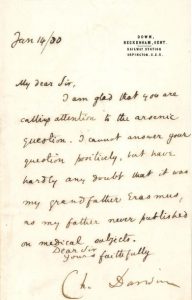 DOWN,
BECKENHAM, KENT.
RAILWAY STATION
ORPINGTON. S.E.R.
Jan 14/80
My dear Sir,
I am glad that you are
calling attention to the arsenic
question. I cannot answer your
question positively, but have
hardly any doubt that it was
my grandfather Erasmus,
as my father never published
on medical subjects.
Dear Sir
Yours faithfully
Ch. Darwin